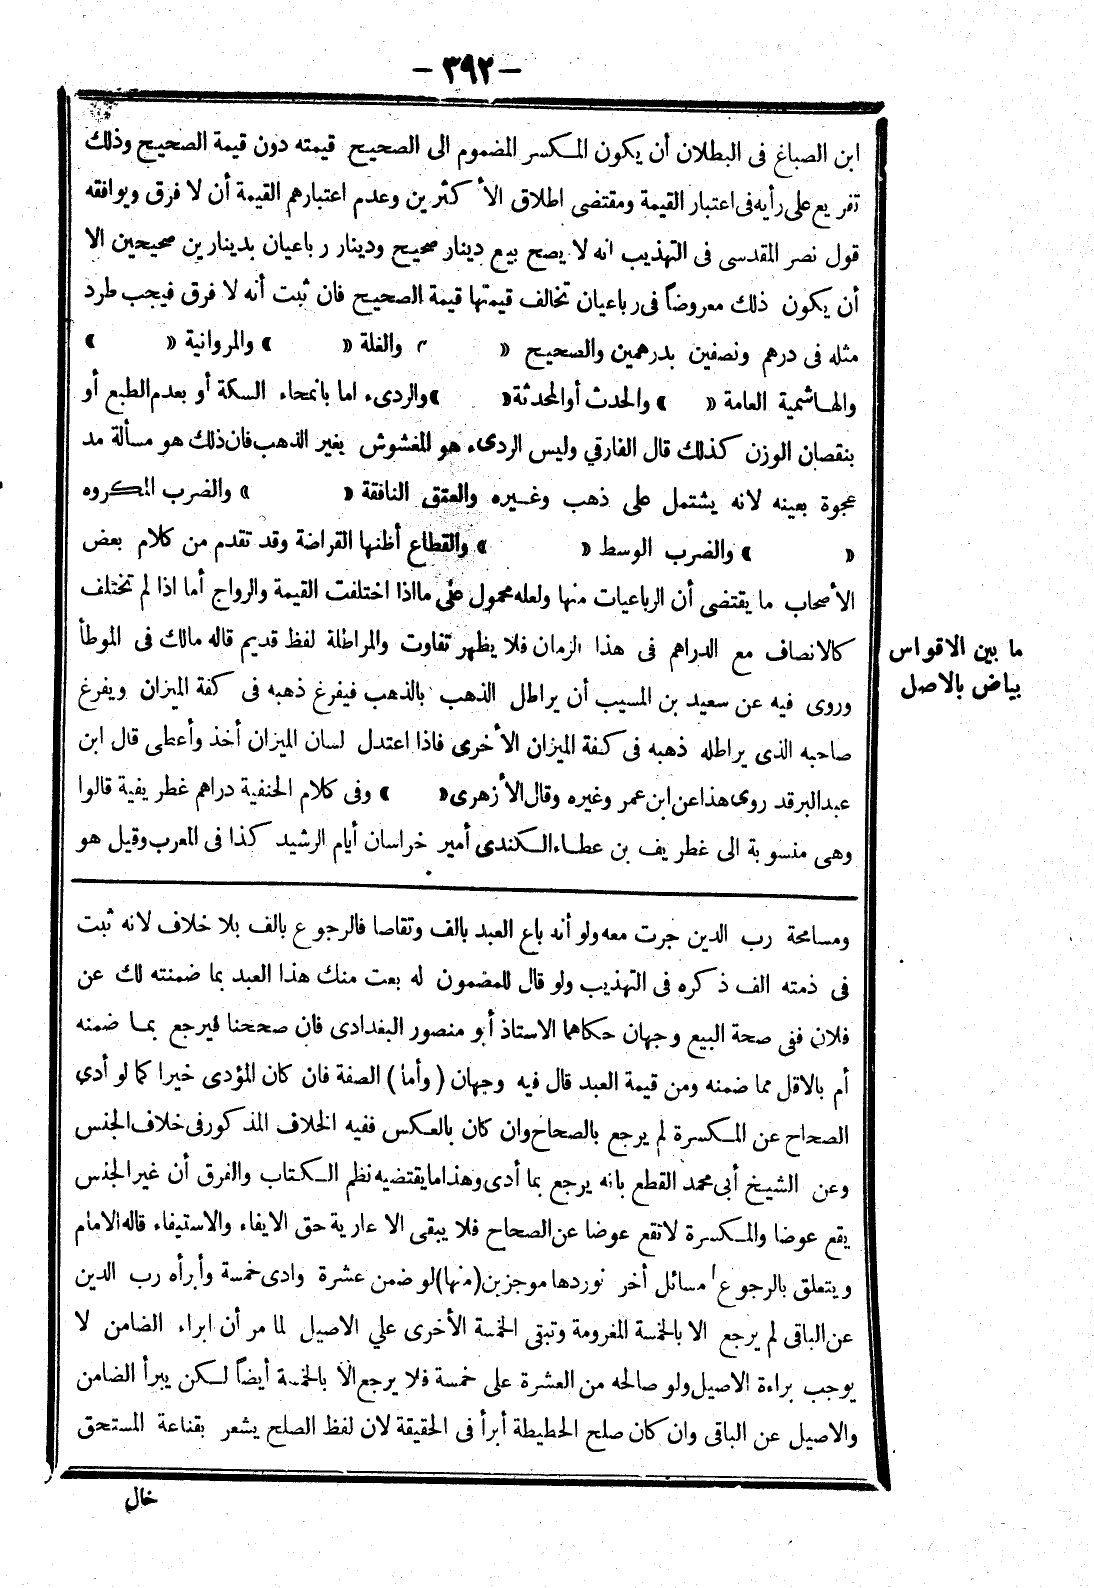 - ٣٩٢ -
ابن الصباغ فى البطلان أن يكون المكسر المضموم الى الصحيح قيمته دون قيمة الصحيح وذلك
تفريع على رأيه فى اعتبار القيمة ومقتضى اطلاق الأكثرين وعدم اعتبارهم القيمة أن لا فرق ويوافقه
قول نصر المقدسى فى التهذيب انه لا يصح بيع دينار صحيح ودينار رباعيان بدينارين صحيحين الا
أن يكون ذلك معروضاً فى رباعيان تخالف قيمتها قيمة الصحيح فان ثبت أنه لا فرق فيجب طرد
مثله فى درهم ونصفين بدرهمين والصحيح « » والغلة « » والمروانية « »
والهاشمية العامة « » والحدث أو المحدثة « » والردىء اما بانمحاء السكة أو بعدم الطبع أو
بنقصان الوزن كذلك قال الفارقي وليس الردىء هو المغشوش بغير الذهب فان ذلك هو مسألة مد
عجوة بعينه لانه يشتمل على ذهب وغيره والعتق النافقة « » والضرب المكروه
« » والضرب الوسط « » والقطاع أظنها القراضة وقد تقدم من كلام بعض
الأصحاب ما يقتضى أن الرباعيات منها ولعله محمول على ما اذا اختلفت القيمة والرواج أما اذا لم تختلف
كالانصاف مع الدراهم فى هذا الزمان فلا يظهر تفاوت والمراطلة لفظ قديم قاله مالك فى الموطأ
وروى فيه عن سعيد بن المسيب أن يراطل الذهب بالذهب فيفرغ ذهبه فى كفة الميزان ويفرغ
صاحبه الذى يراطله ذهبه فى كفة الميزان الأخرى فاذا اعتدل لسان الميزان أخذ وأعطى قال ابن
عبد البر قد روى هذا عن ابن عمر وغيره وقال الأزهرى « » وفى كلام الحنفية دراهم غطريفية قالوا
وهى منسوبة الى غطريف بن عطاء الكندى أمير خراسان أيام الرشيد كذا فى المعرب وقيل هو
ما بين الاقواس
بياض بالاصل
ومسامحة رب الدين جرت معه ولو أنه باع العبد بالف وتقاصا فالرجوع بالف بلا خلاف لانه ثبت
فى ذمته الف ذكره فى التهذيب ولو قال للمضمون له بعت منك هذا العبد بما ضمنته لك عن
فلان ففى صحة البيع وجهان حكاهما الاستاذ أبو منصور البغدادى فان صححنا فيرجع بما ضمنه
أم بالاقل مما ضمنه ومن قيمة العبد قال فيه وجهان (وأما) الصفة فان كان المؤدى خيرا كما لو أدي
الصحاح عن المكسرة لم يرجع بالصحاح وان كان بالعكس ففيه الخلاف المذكور فى خلاف الجنس
وعن الشيخ أبى محمد القطع بانه يرجع بما أدى وهذا ما يقتضيه نظم الكتاب والفرق أن غير الجنس
يقع عوضا والمكسرة لا تقع عوضا عن الصحاح فلا يبقى الا عارية حق الايفاء والاستيفاء قاله الامام
ويتعلق بالرجوع مسائل أخر نوردها موجزين (منها) لو ضمن عشرة وادى خمسة وأبرأه رب الدين
عن الباقى لم يرجع الا بالخمسة المغرومة وتبقى الخمسة الأخرى علي الاصيل لما مر أن ابراء الضامن لا
يوجب براءة الاصيل ولو صالحه من العشرة على خمسة فلا يرجع الا بالخمسة أيضاً لكن يبرأ الضامن
والاصيل عن الباقى وان كان صلح الحطيطة أبرأ فى الحقيقة لان لفظ الصلح يشعر بقناعة المستحق
خال